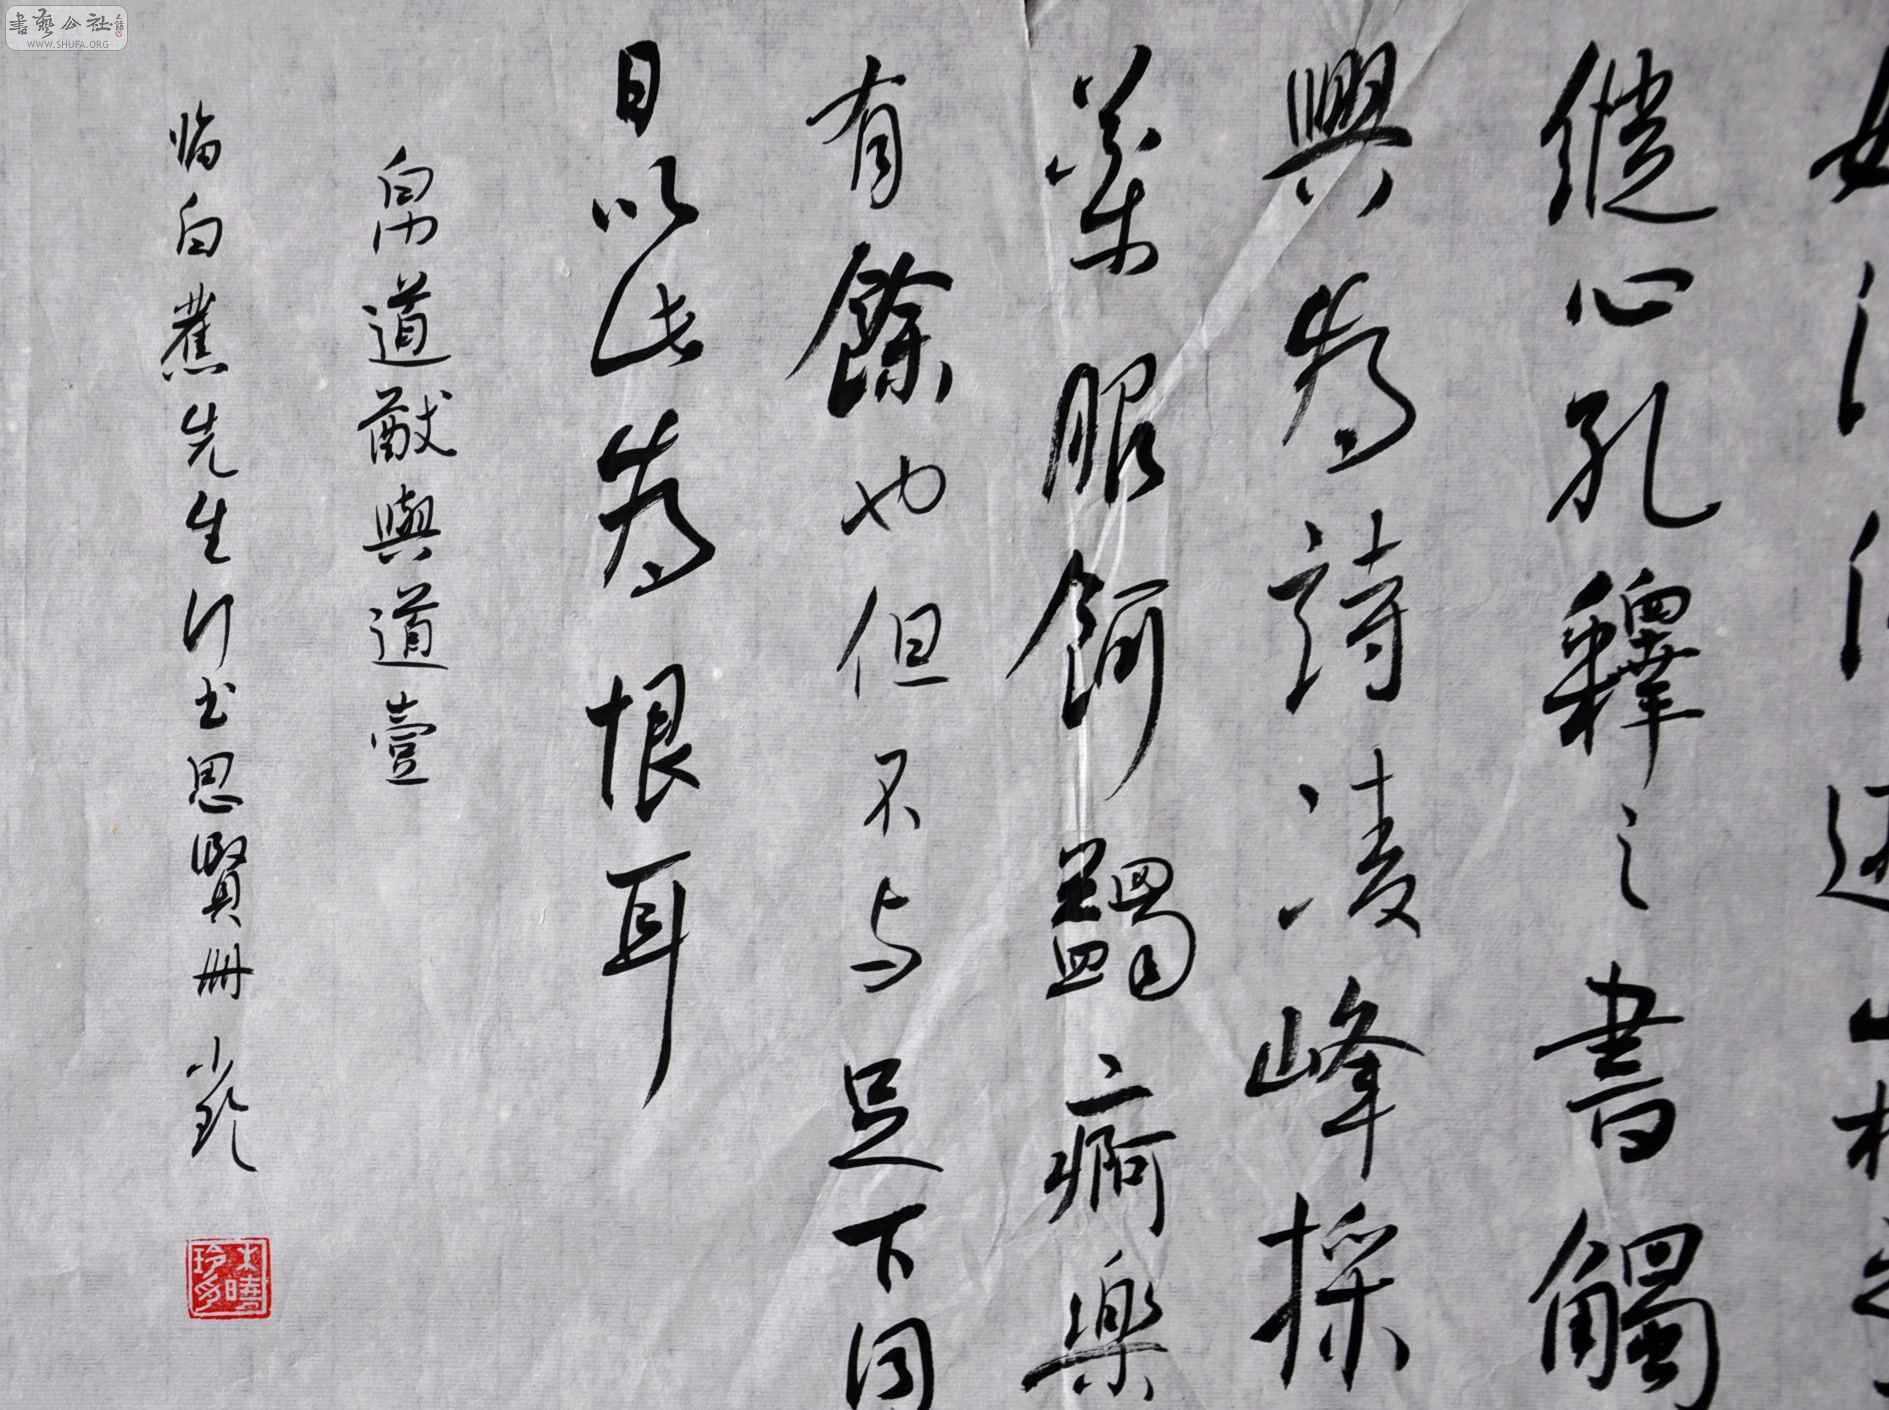 縱心孔釋之書觸
興為詩凌峰採
藥服餌蠲痾樂
有餘也但不与足下同
日以此為恨耳
帛道猷與道壹
临白蕉先生行书思賢冊 小玲
書藝公社
WWW.SHUFA.ORG